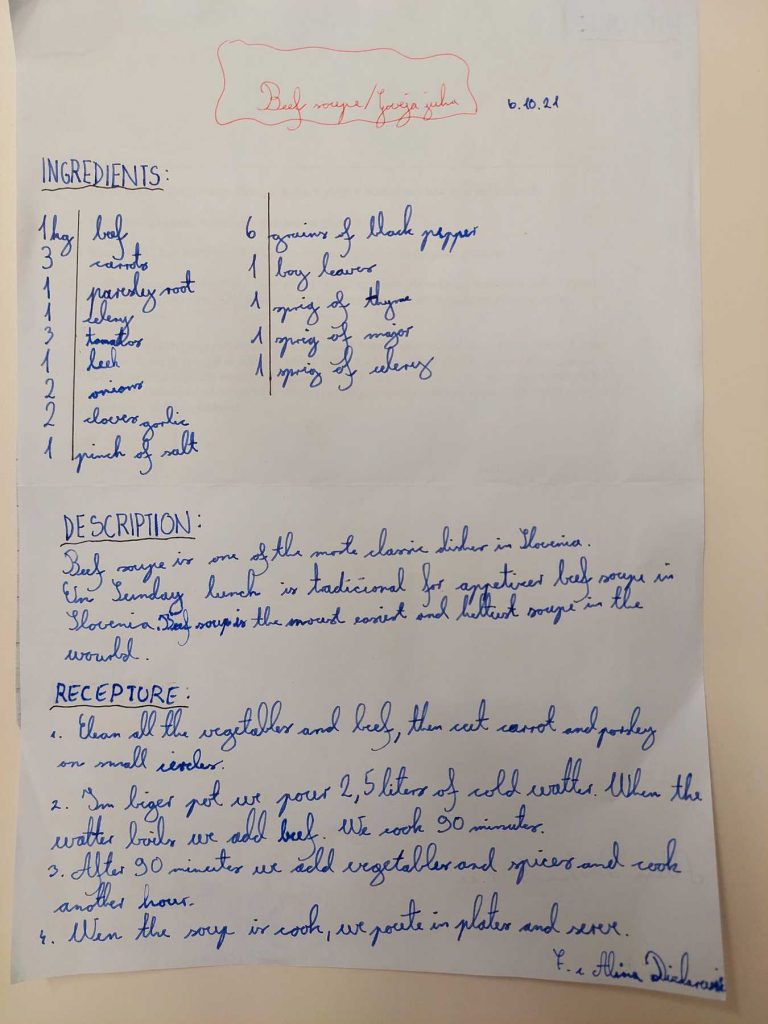 Beef soupe/Goveja juha
6.10.21
INGREDIENTS:
1kg beef
3 carrots
1 paresley root
1 celeny
3 tomatos
1 leek
2 onions
2 cloves garlic
1 pinch of salt
6 grains of black pepper
1 boy leaves
1 sprig of thyme
1 sprig of major
1 sprig of celery
DESCRIPTION:
Beef soupe is one of the moste classic dishes in Slovenia.
On Sunday lunch is tadicional for appeticer beef soupe in
Slovenia. Beef soup is the mouest easiest and heltest soupe in the
wourld.
RECEPTURE:
1. Clean all the vegetables and beef, then cut carrot and parsley
on small circles.
2. Im biger pot we pour 2,5 liters of cold watter. When the
watter boils we add beef. We cook 90 minutes.
3. After 90 minutes we add vegetables and spices and cook
another hour.
4. Wen the soup is cook, we poute in plates and serve.
Alina